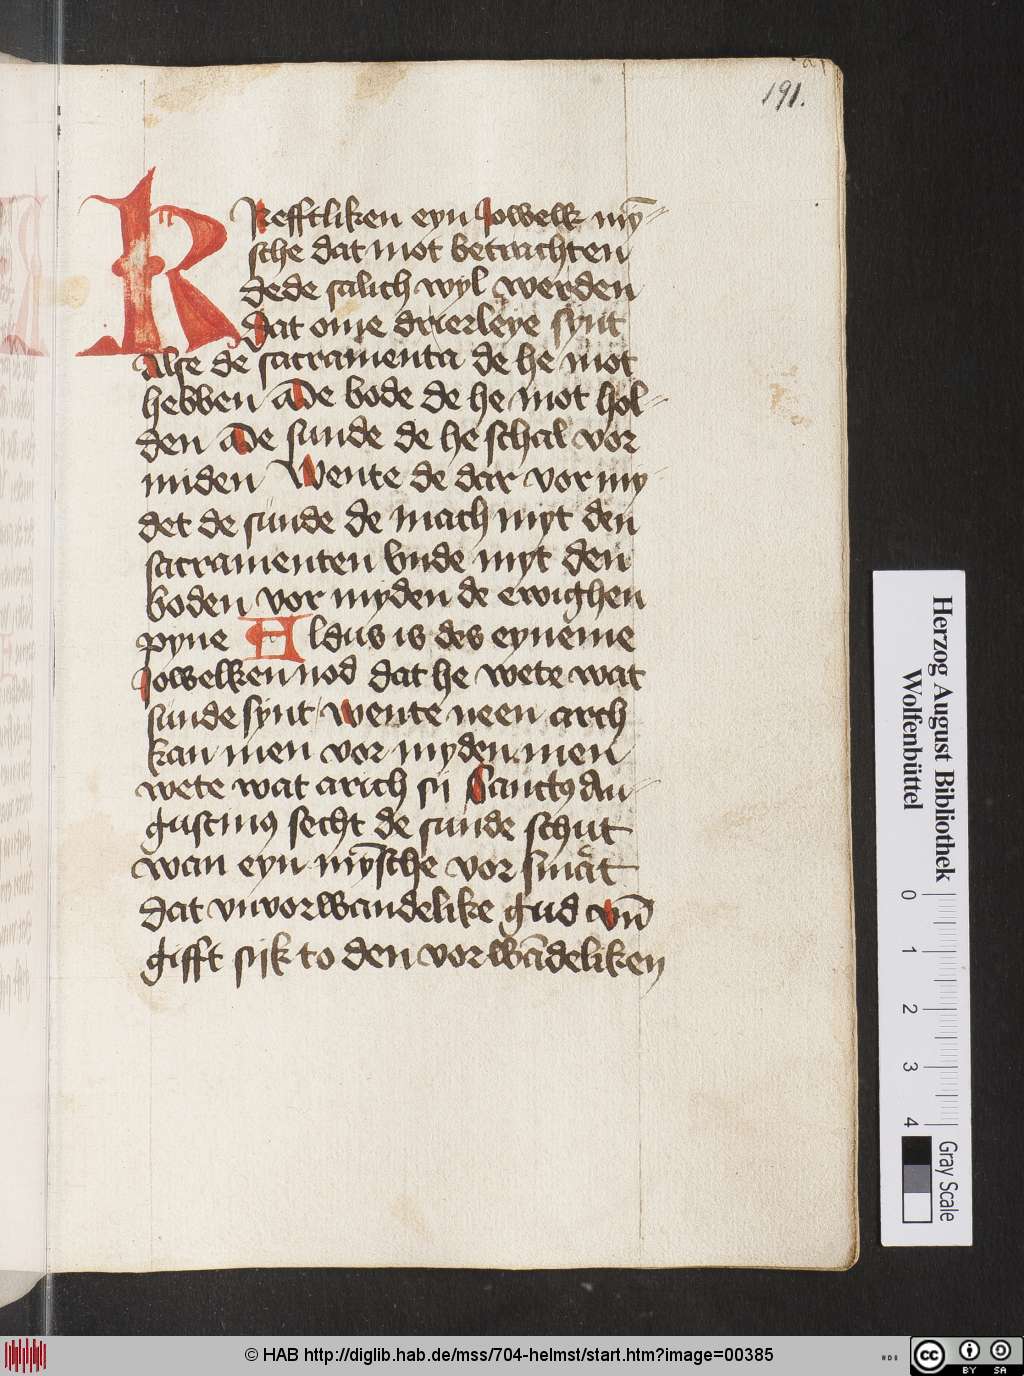 191.
KRefftliken eyn Jowelk mȳ-
sche dat mot betrachten
dede salich wyl werden
dat ome drierleye synt
Alse de sacramenta de he mot
hebben De bode de he mot hol-
den De sunde de he schal vor
miden Wente de dar vor my-
det de sunde de mach myt den
sacramenten vnde myt den
boden vor myden de ewighen
pyne Aldus is des eyneme
Jowelken nod dat he wete wat
sunde synt wente neen arch
kan men vor myden men
wete wat arich sy Sanctꝰ Au-
gustinꝰ secht de sunde schut
wan eyn mȳsche vor smaͤt
dat vnvorwandelike gud vn̄
gifft sijk to den vorwādeliken
Herzog August Bibliothek
Wolfenbüttel
0 1 2 3 4
Gray Scale
© HAB http://diglib.hab.de/mss/704-helmst/start.htm?image=00385
cc BY SA